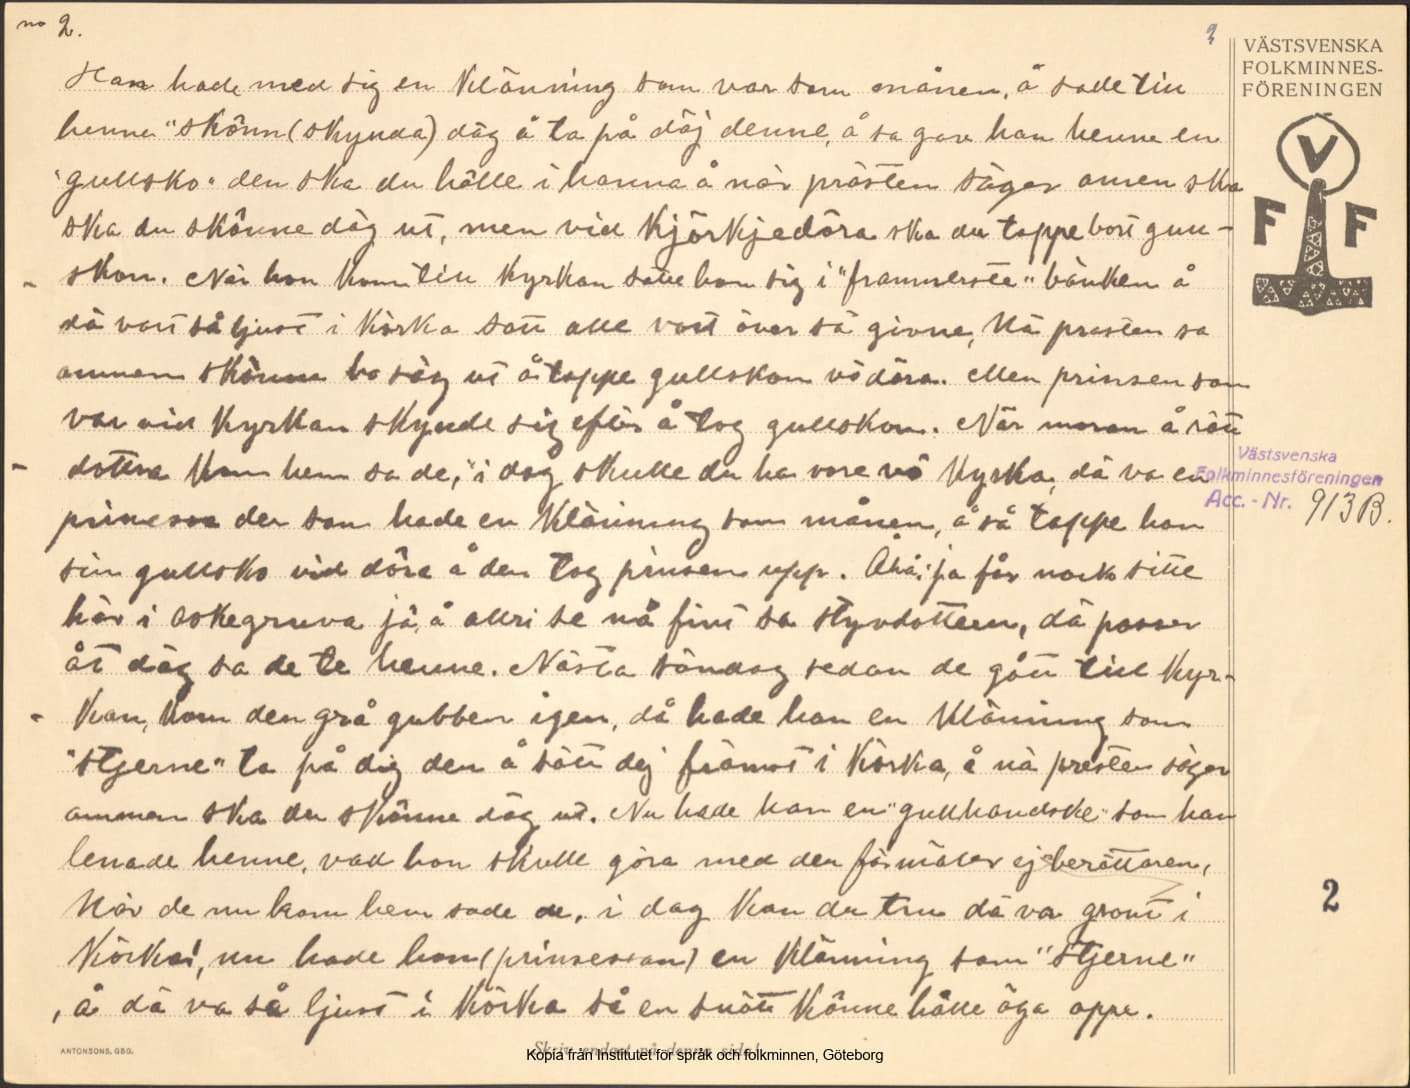 no 2.
2
VÄSTSVENSKA
FOLKMINNES-
FÖRENINGEN
V
F F
Han hade med sig en klänning som var som månen, å sade till
henne "skönn (skynda) däg å ta på däj denne, å sa gav han henne en
"gullsko" den ska du hålle i hanna å når prästen säger amen ska
ska du skönne däg ut, men vid kjörkjedöra ska du tappe bort gull-
skon. När hon kom till kyrkan satte hon sig i "frammerste" bänken å
då vart så ljust i körka satt alle vart över sä givne, Nä prästen sa
ammen skönne ho säg ut å tappe gullskon vö döra. Men prinsen som
var vid kyrkan skynde sig efter å tog gullskon. När moran å rätt
dottra kom hem sa de, "i dag skulle du ha vore vö kyrka, då va en
prinessa der som hade en klänning som månen, å så tappe hon
sin gullsko vid döra å den tog prinsen upp. Åhå, ja får nock sitte
här i askegruva jä, å allri se nå fint sa styvdottern, dä passer
åt däg sa de te henne. Nästa söndag sedan de gått till kyr-
kan, kom den grå gubben igen, då hade han en klänning som
"stjerne" ta på dig den å sätt dej främst i körka, å nä presten säger
ammen ska du skönne däg ut. Nu hade han en "gullhandske" som han
lenade henne, vad hon skulle göra med den förmäler ej berättaren,
När de nu kom hem sade de, i dag kan du tru dä var grant i
körka!, nu hade hon (prinsessan) en klänning som "stjerne"
, å dä va så ljust i körka så en snött könne hålle öga oppe.
Västsvenska
Folkminnesföreningen
Acc.-Nr. 913 B.
2
ANTONSONS, GBG.
Skriv endast på denna sida!
Kopia från Institutet för språk och folkminnen, Göteborg